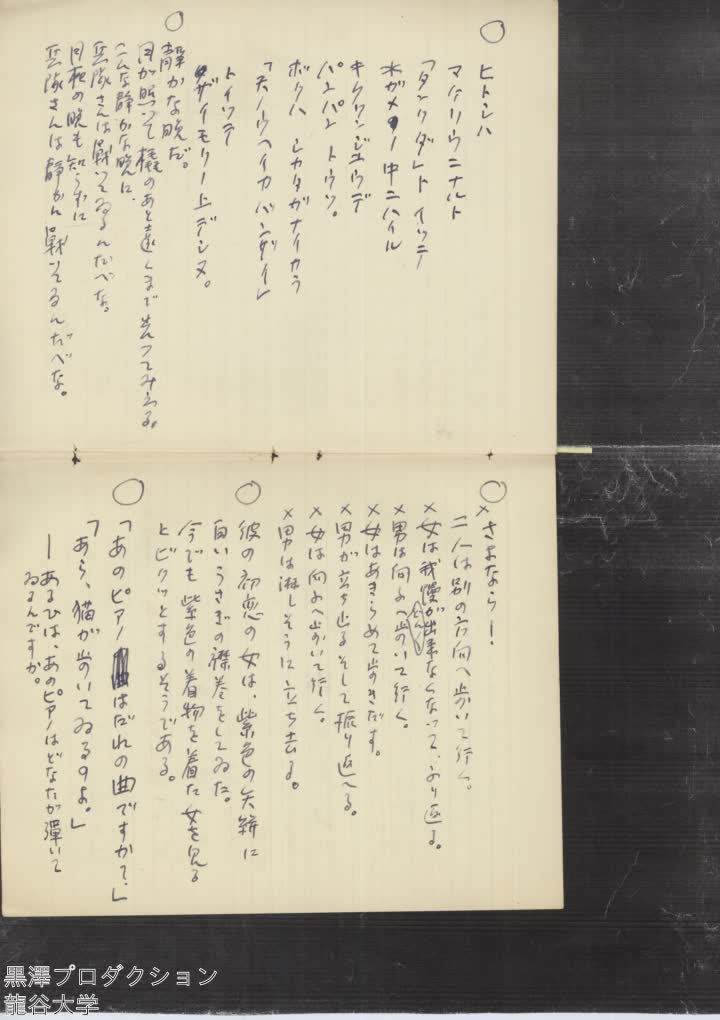 ○
ヒトシハ
マケソウニナルト
「タンクダレト イッテ
水ガメノ中ニハイル
キクヮンジュウデ
パンパン トウツ。
ボクハ シカタガナイカラ
「天ノウヘイカ バンザイ」
トイッテ
ザイモクノ上デシヌ。
○
静かな晩だ。
月が照って橇のあと遠くまで光ってみえる。
こんな静かな晩に、
兵隊さんは戰ってゐるんだべな。
月夜の晩も知らずに
兵隊さんは静かに戰ってるんだべな。
○
×さよなら！
二人は別の方向へ歩いて行く。
×女は我慢が出来なくなって、ふり返る。
×男は向ふへ歩いて行く。
×女はあきらめて歩きだす。
×男が立ち止る そして振り返へる。
×女は向ふへ歩いて行く。
×男は淋しそうに立ち去る。
○
彼の初恋の女は、紫色の矢絣に
白いうさぎの襟巻をしてゐた。
今でも紫色の着物を着た女を見る
とビクッとするそうである。
○
「あのピアノはだれの曲ですかて？」
「あら、猫が歩いてゐるのよ。」
—あるひは、あのピアノはどなたが彈いて
ゐるんですか。
黒澤プロダクション
龍谷大学